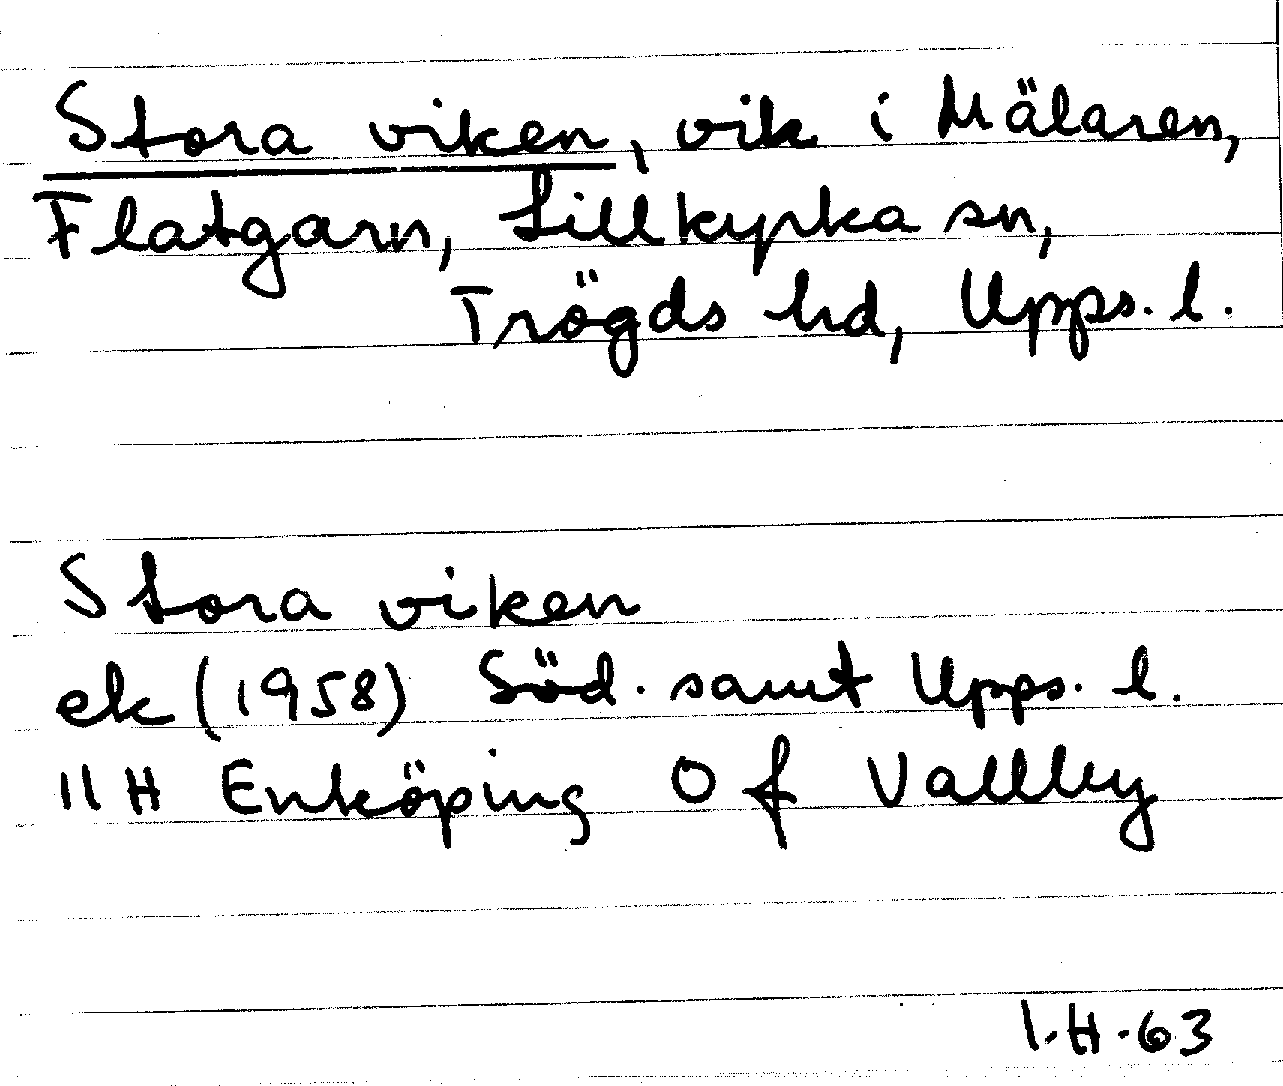 Stora viken, vik i Mälaren,
Flatgarn, Lillkyrka sn,
Trögds hd, Upps. l.
Stora viken
ek (1958) Söd. samt Upps. l.
11 H Enköping O f Vallby
I.H.63